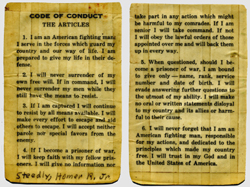 CODE OF CONDUCT
THE ARTICLES
1. I am an American fighting man.
I serve in the forces which guard my
country and our way of life. I am
prepared to give my life in their de-
fense.
2. I will never surrender of my
own free will. If in command, I will
never surrender my men while they
still have the means to resist.
3. If I am captured I will continue
to resist by all means available. I will
make every effort to escape and aid
others to escape. I will accept neither
parole nor special favors from the
enemy.
4. If I become a prisoner of war,
I will keep faith with my fellow pris-
oners. I will give no information nor
Steedly, Homer R. Jr.
take part in any action which might
be harmful to my comrades. If I am
senior I will take command. If not
I will obey the lawful orders of those
appointed over me and will back them
up in every way.
5. When questioned, should I be-
come a prisoner of war, I am bound
to give only name, rank, service
number and date of birth. I will
evade answering further questions to
the utmost of my ability. I will make
no oral or written statements disloyal
to my country and its allies or harm-
ful to their cause.
6. I will never forget that I am an
American fighting man, responsible
for my actions, and dedicated to the
principles which made my country
free. I will trust in my God and in
the United States of America.